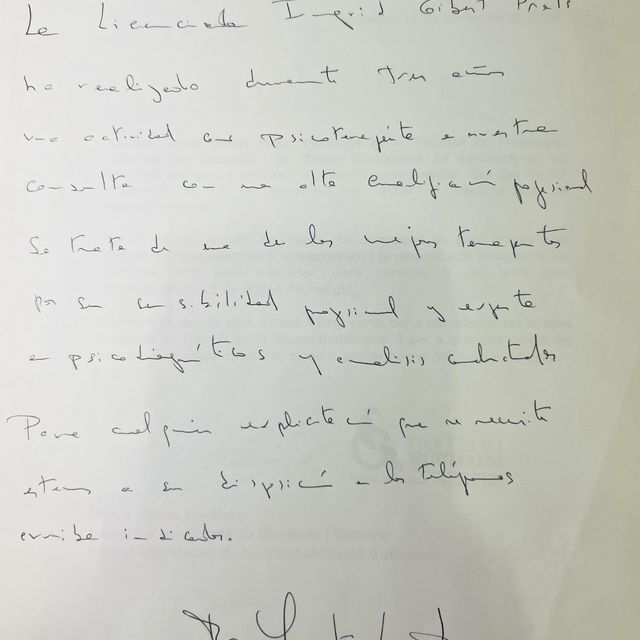 La Licenciada Ingrid Gibert Prats
ha realizado durante tres años
una actividad como psicoterapeuta en nuestra
consulta con una alta cualificación profesional
Se trata de una de los mejores terapeutas
por su sensibilidad profesional y experta
en psicodiagnósticos y análisis conductales
Para cualquier explicación que se necesite
estamos a su disposición en los teléfonos
arriba indicados.